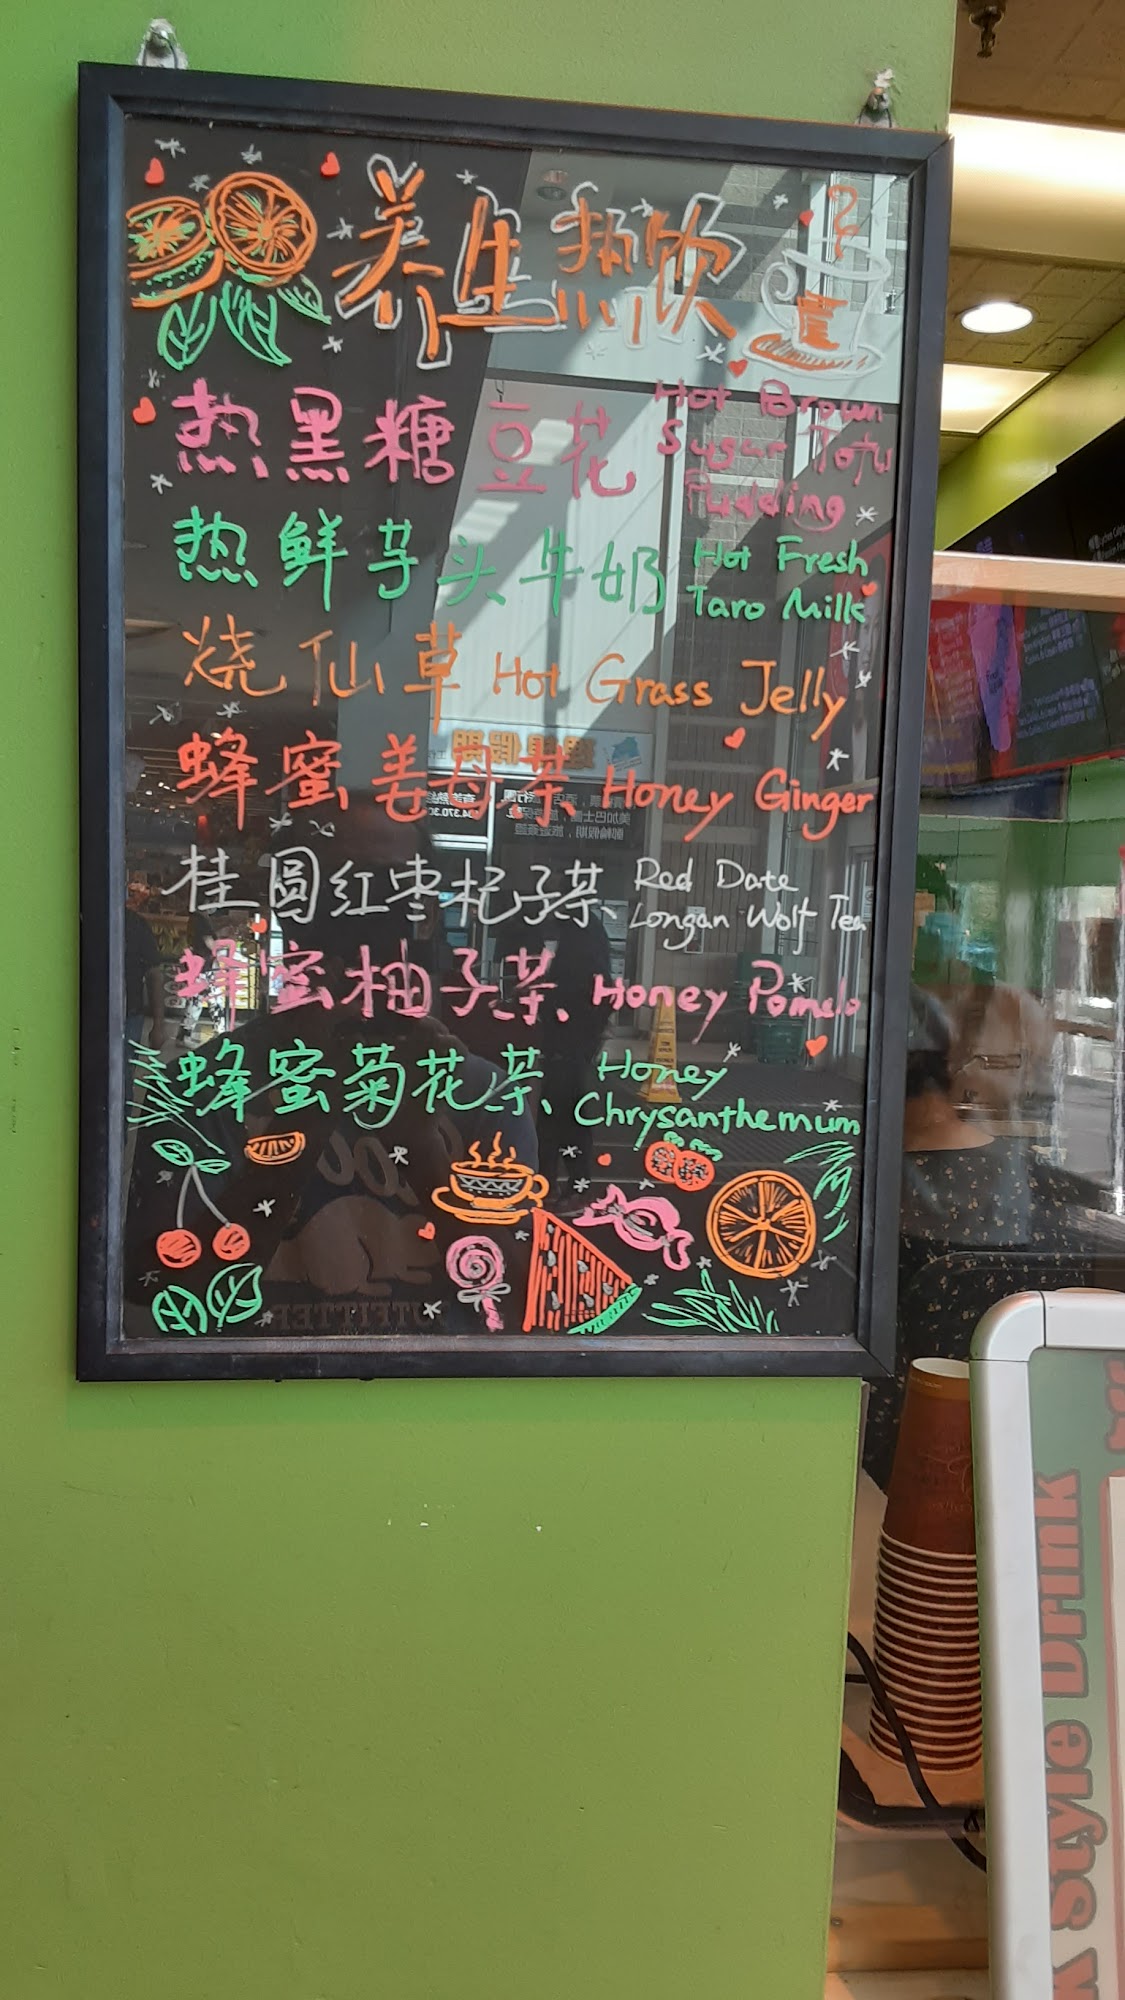 养生热饮
热黑糖豆花 Hot Brown
Sugar Tofu
Pudding
热鲜芋头牛奶 Hot Fresh
Taro Milk
烧仙草 Hot Grass Jelly
蜂蜜姜母茶 Honey Ginger
桂圆红枣杞子茶 Red Date
Longan Wolf Tea
蜂蜜柚子茶 Honey Pomelo
蜂蜜菊花茶 Honey
Chrysanthemum
Style Drink